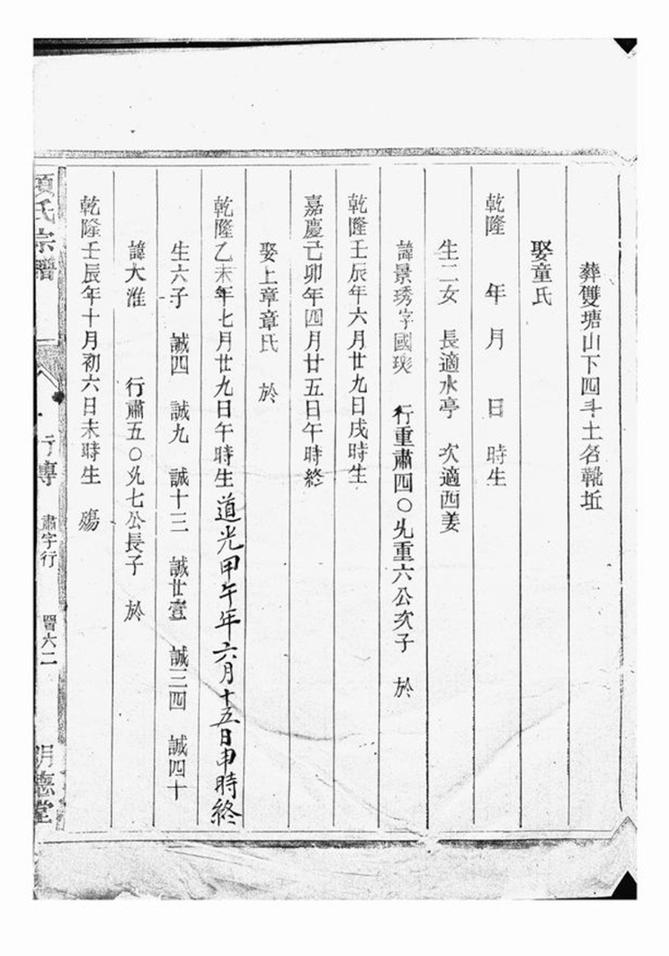 葬雙塘山下四斗土名靴坵
娶童氏
乾隆 年 月 日 時生
生二女 長適水亭 次適西姜
諱景琇字國 行重肅四〇 重六公次子 於
乾隆壬辰年六月廿九日戌時生
嘉慶己卯年四月廿五日午時終
娶上章章氏 於
乾隆乙未年七月廿九日午時生道光甲午年六月十五日申時終
生六子 誠四 誠九 誠十三 誠廿壹 誠三四 誠四十
諱大淮 行肅五〇 九七公長子 於
乾隆壬辰年十月初六日未時生 殤
項氏宗譜
行傳 肅字行 六二 明德堂